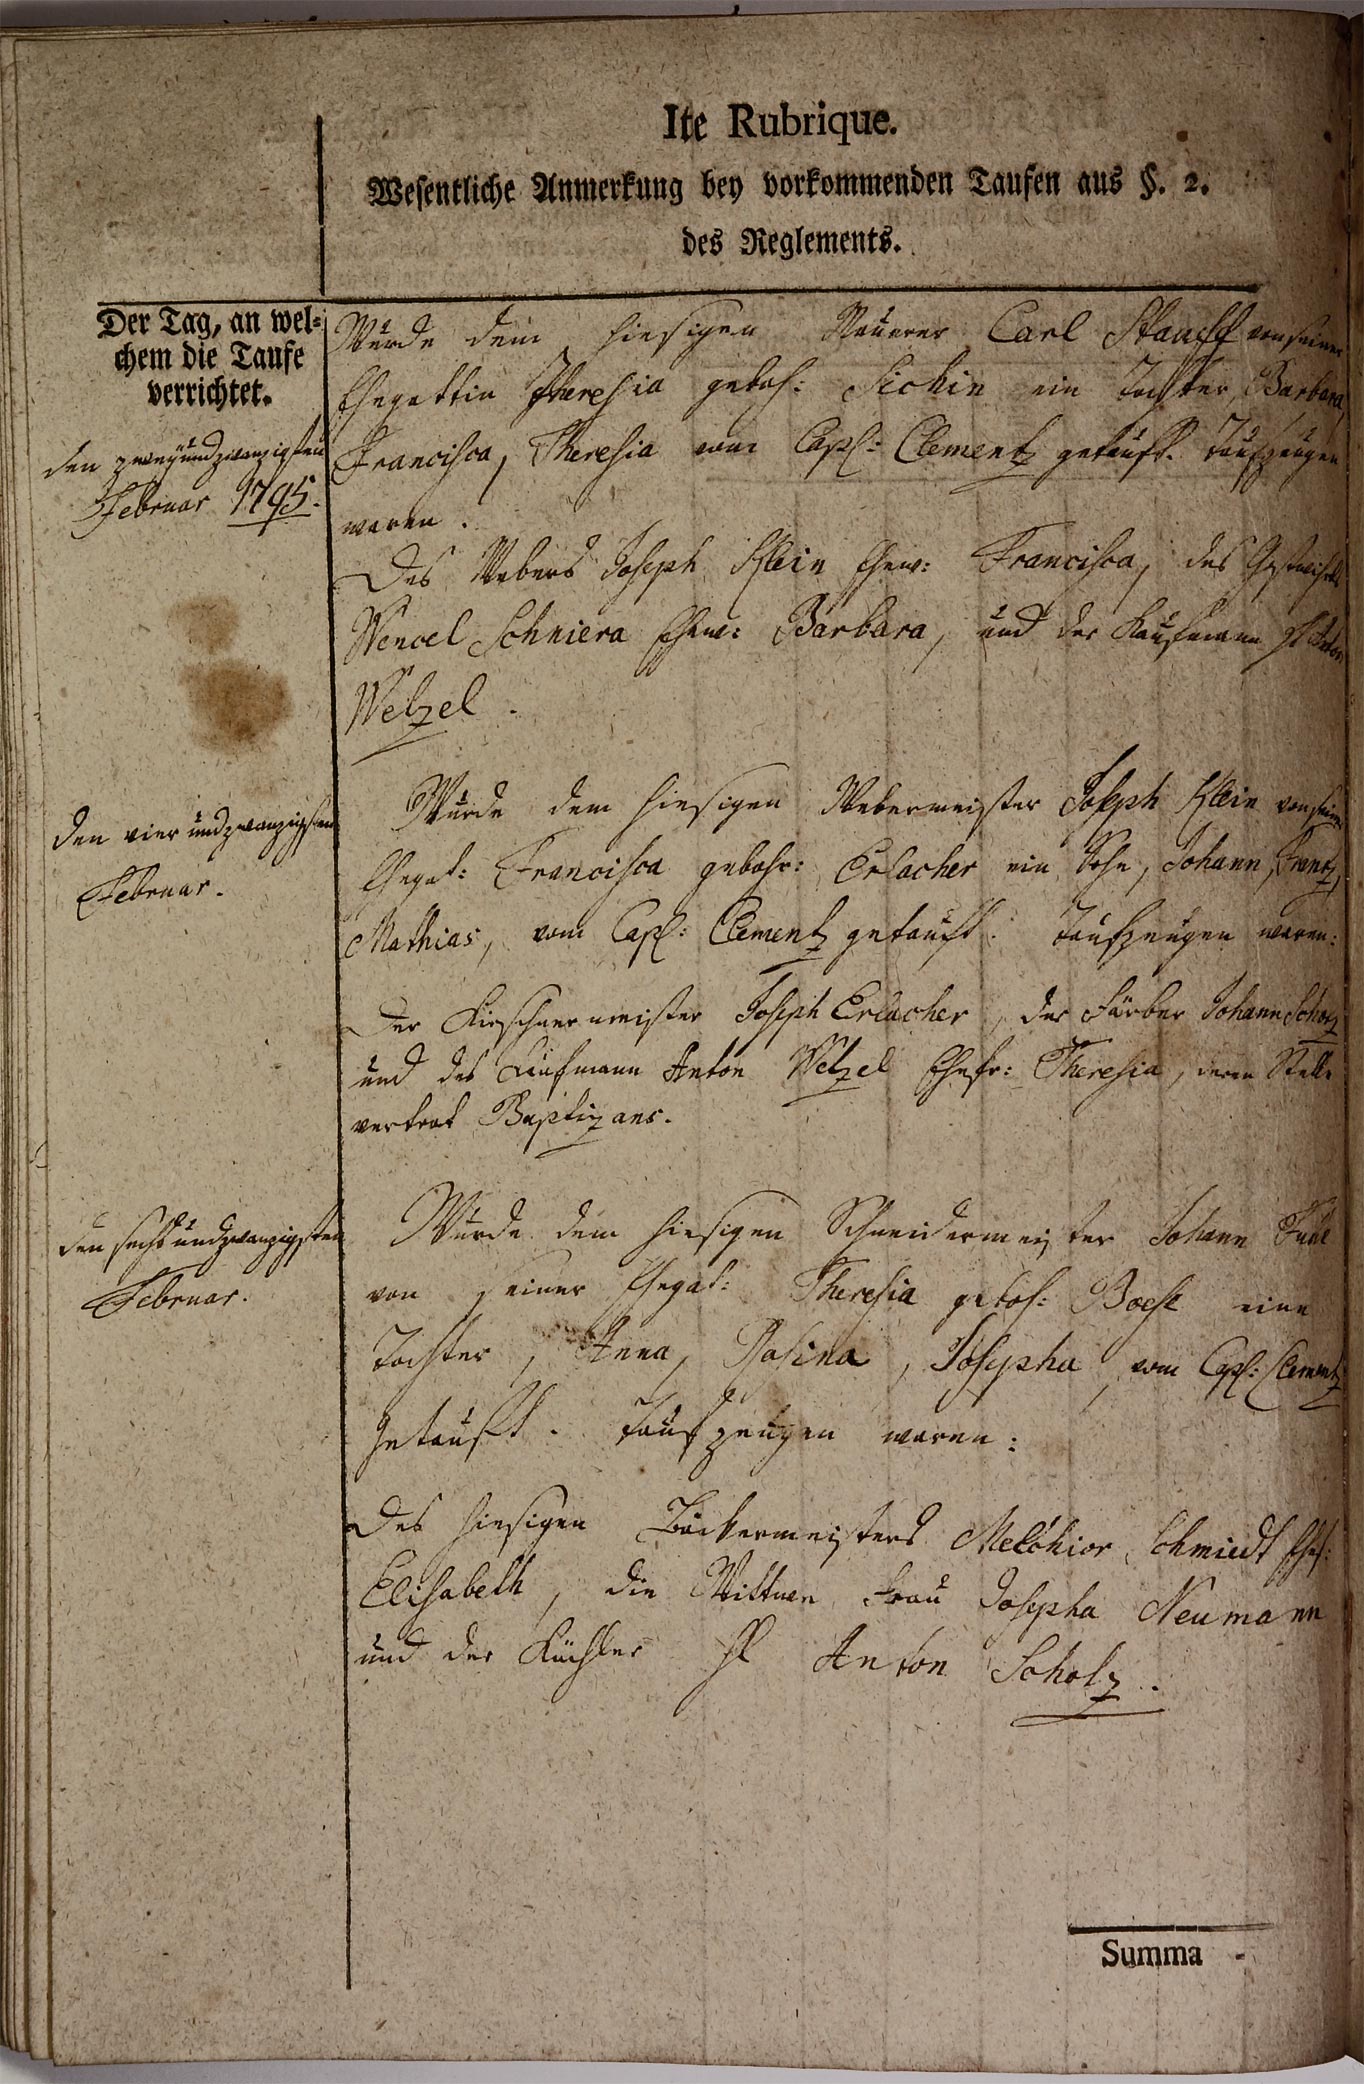 Ite Rubrique.
Wesentliche Anmerkung bey vorkommenden Taufen aus §. 2.
des Reglements.
Der Tag, an wel=
chem die Taufe
verrichtet.
den zweyundzwanzigsten
Februar 1795.
Wurde dem hiesigen Maurer Carl Stauff von seiner
Ehegattin Theresia geboh: Sichin ein Tochter, Barbara,
Francisca, Theresia vom Capl: Clementz getauft. Taufzeugen
waren.
Des Webers Joseph Klein Ehew: Francisca, des
Wencel Schniera Ehew: Barbara, und der Kaufmann H Anton
Welzel.
den vier undzwanzigsten
Februar.
Wurde dem hiesigen Webermeister Joseph Klein von seiner
Ehegat: Francisca gebohr: Erlacher ein Sohn, Johann, Frantz,
Mathias, vom Capl: Clementz getauft. Taufzeugen waren:
Der Kirschnermeister Joseph Erlacher, der Färber Johann Scholz
und des Kaufmann Anton Welzel Ehefr: Theresia, deren Stelle
vertrat Baptizans.
den sechs undzwanzigsten
Februar.
Wurde dem hiesigen Schneidermeister Johann
von seiner Ehegat: Theresia geboh: Boese eine
Tochter, Anna, Rosina, Josepha, vom Capl: Clementz
getauft. Taufzeugen waren:
Des hiesigen Bäckermeisters Melchior Schmiedt
Elisabeth, die Wittwe Frau Josepha Neumann
und der Küchler H Anton Scholz.
Summa -